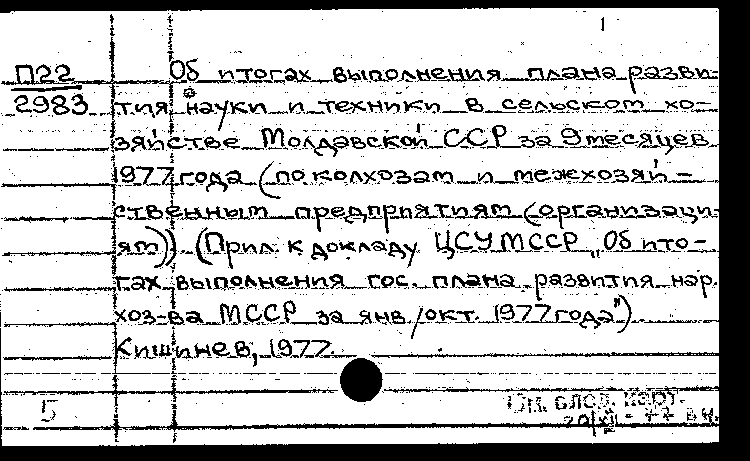 1
П22 Об итогах выполнения плана разви-
2983 тия науки и техники в сельском хо-
зяйстве Молдавской ССР за 9 месяцев
1977 года (по колхозам и межхозяй-
ственным предприятиям (организаци-
ям)) (Прил. к докладу ЦСУ МССР „Об ито-
гах выполнения гос. плана развития нар.
хоз-ва МССР за янв./окт. 1977 года")
Кишинев, 1977.
Б